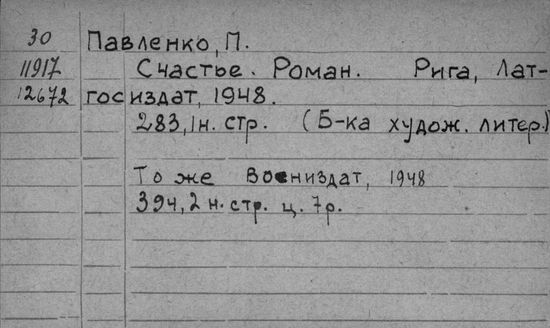 30 Павленко, П.
11917 Счастье. Роман. Рига, Лат-
12672 госиздат, 1948.
283, 1 н. стр. (Б-ка худож. литер.)
То же Воениздат, 1948
394, 2 н. стр. ц. 7 р.